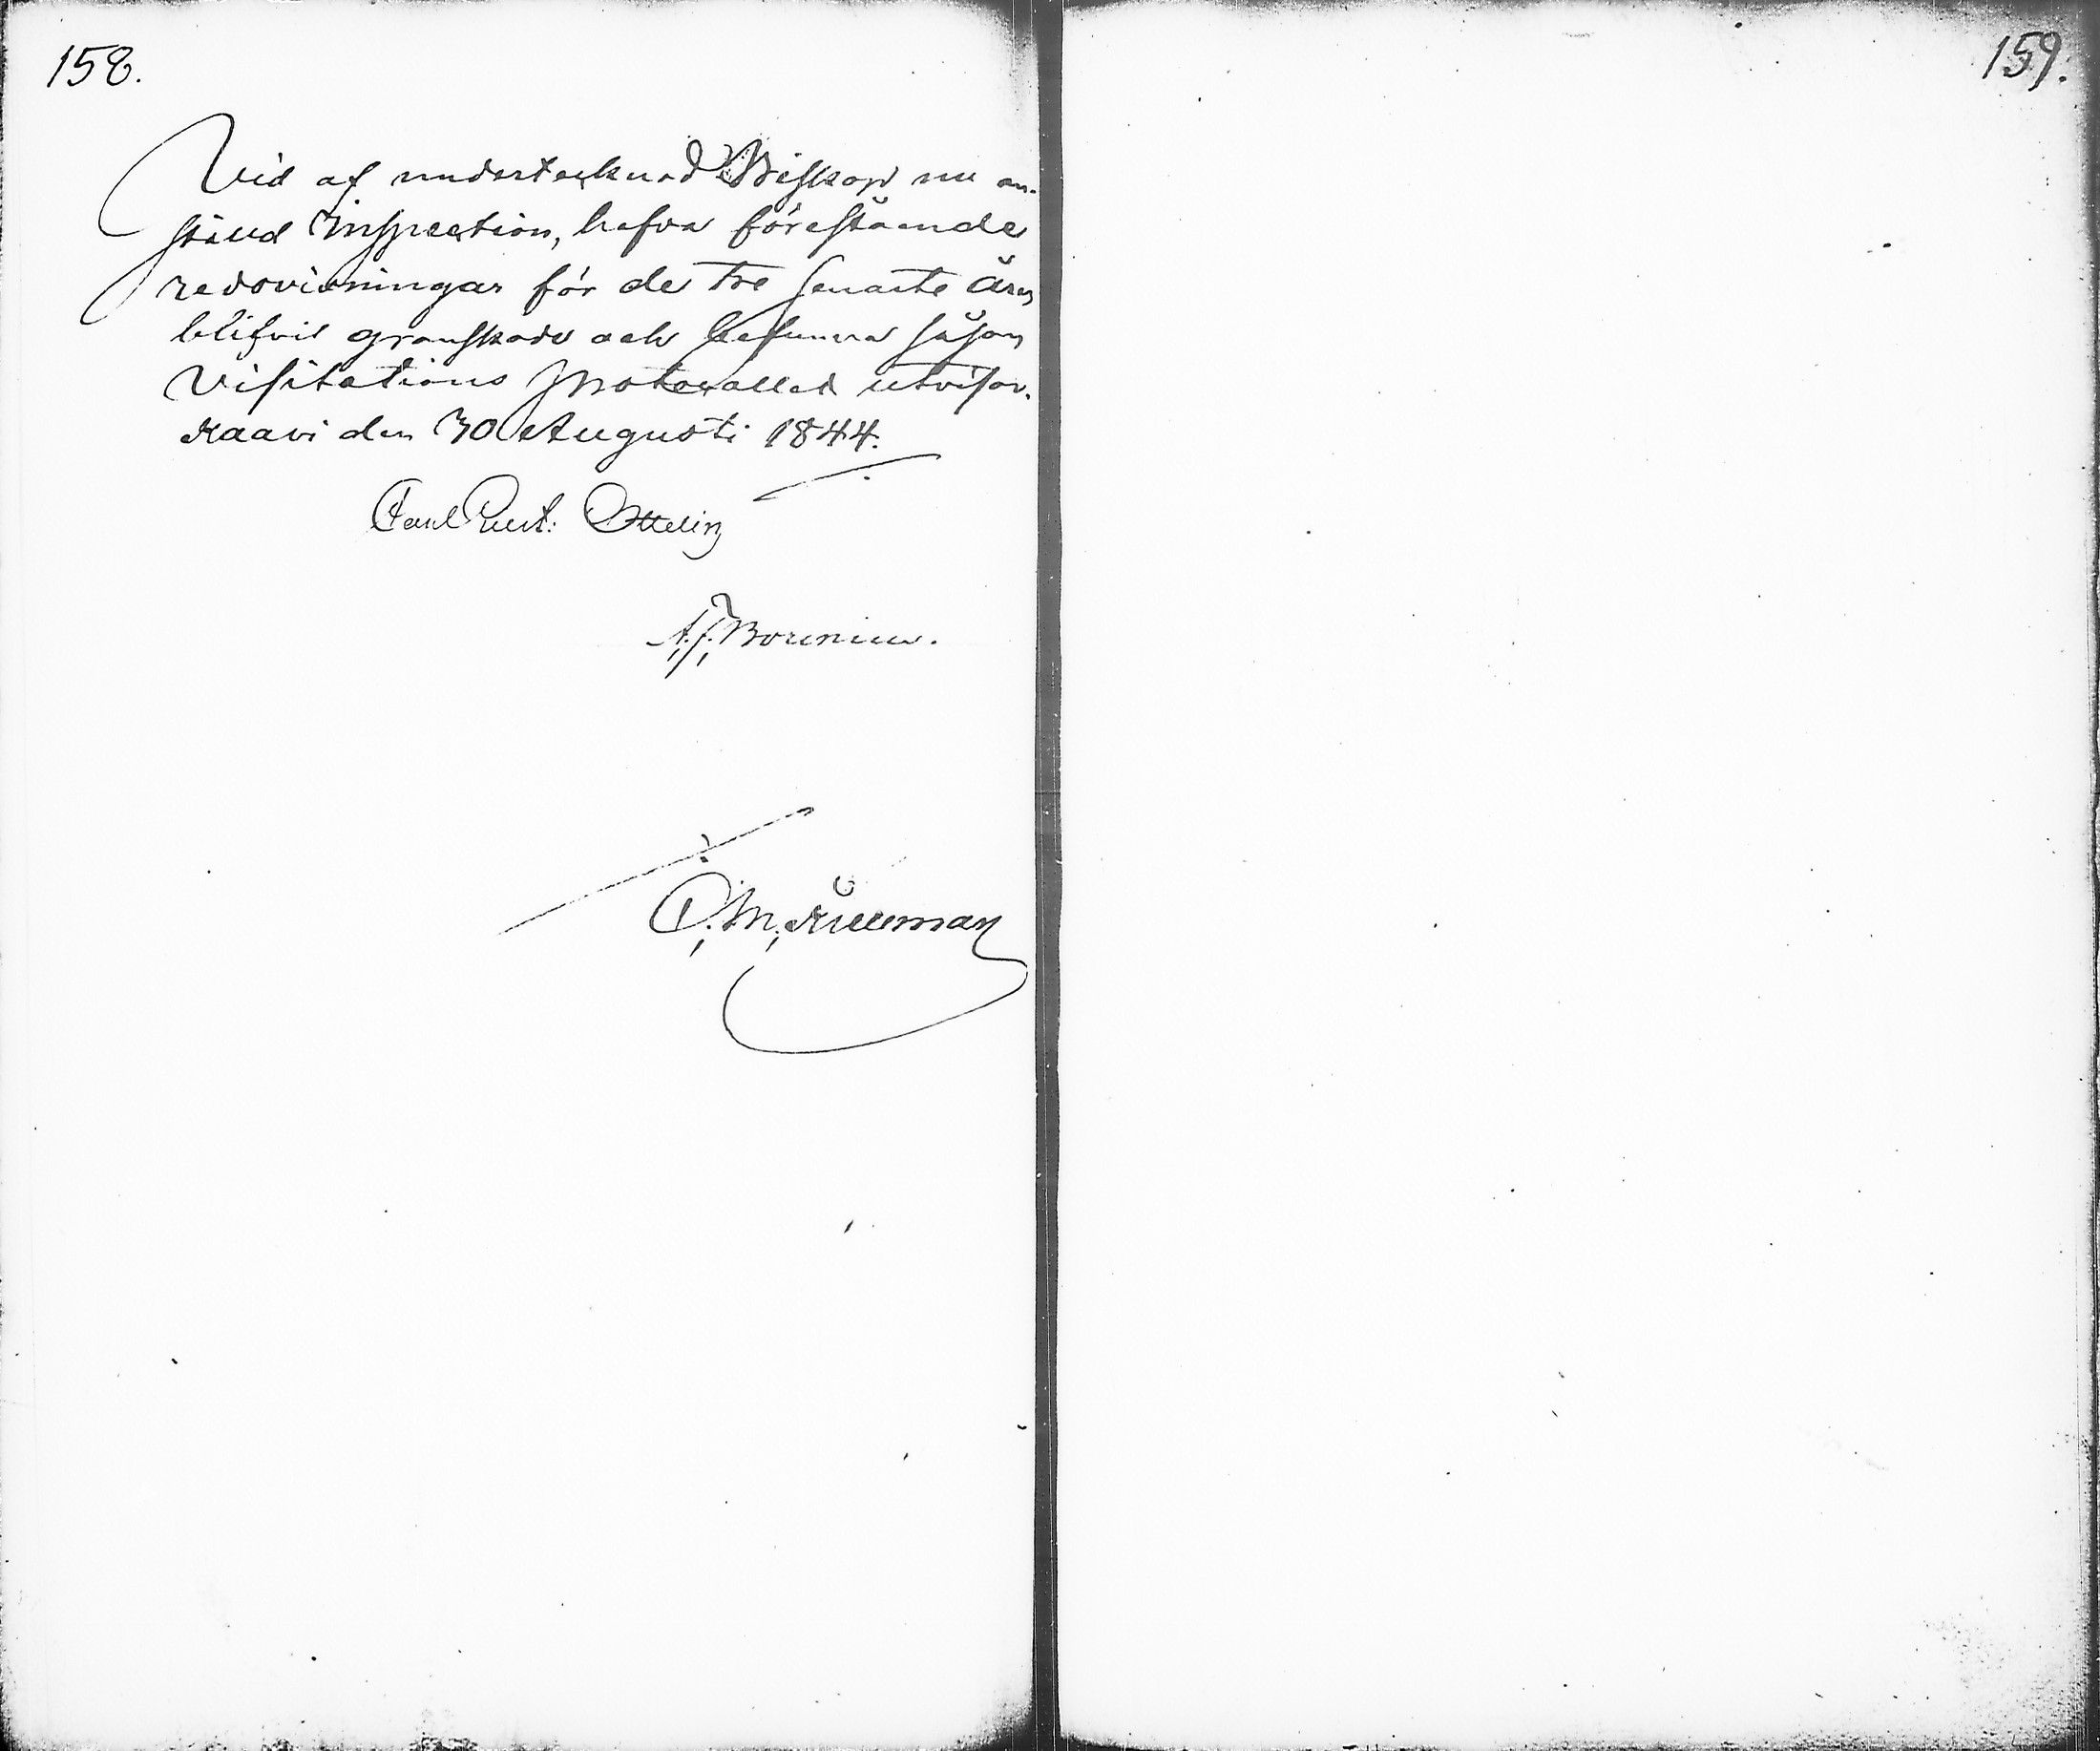 158.
Vid af undertecknad Biskop nu an-
stäld Inspection, hafva föreståénde
redovisningar för de tre senaste åren
blifvit granskade och befunna såsom
Visitations Protocollet utvisar.
Kaavi den 30 Augusti 1844.
Carl Gust. Ottelin
A. J. Borenius.
O. M. Kullman
159.